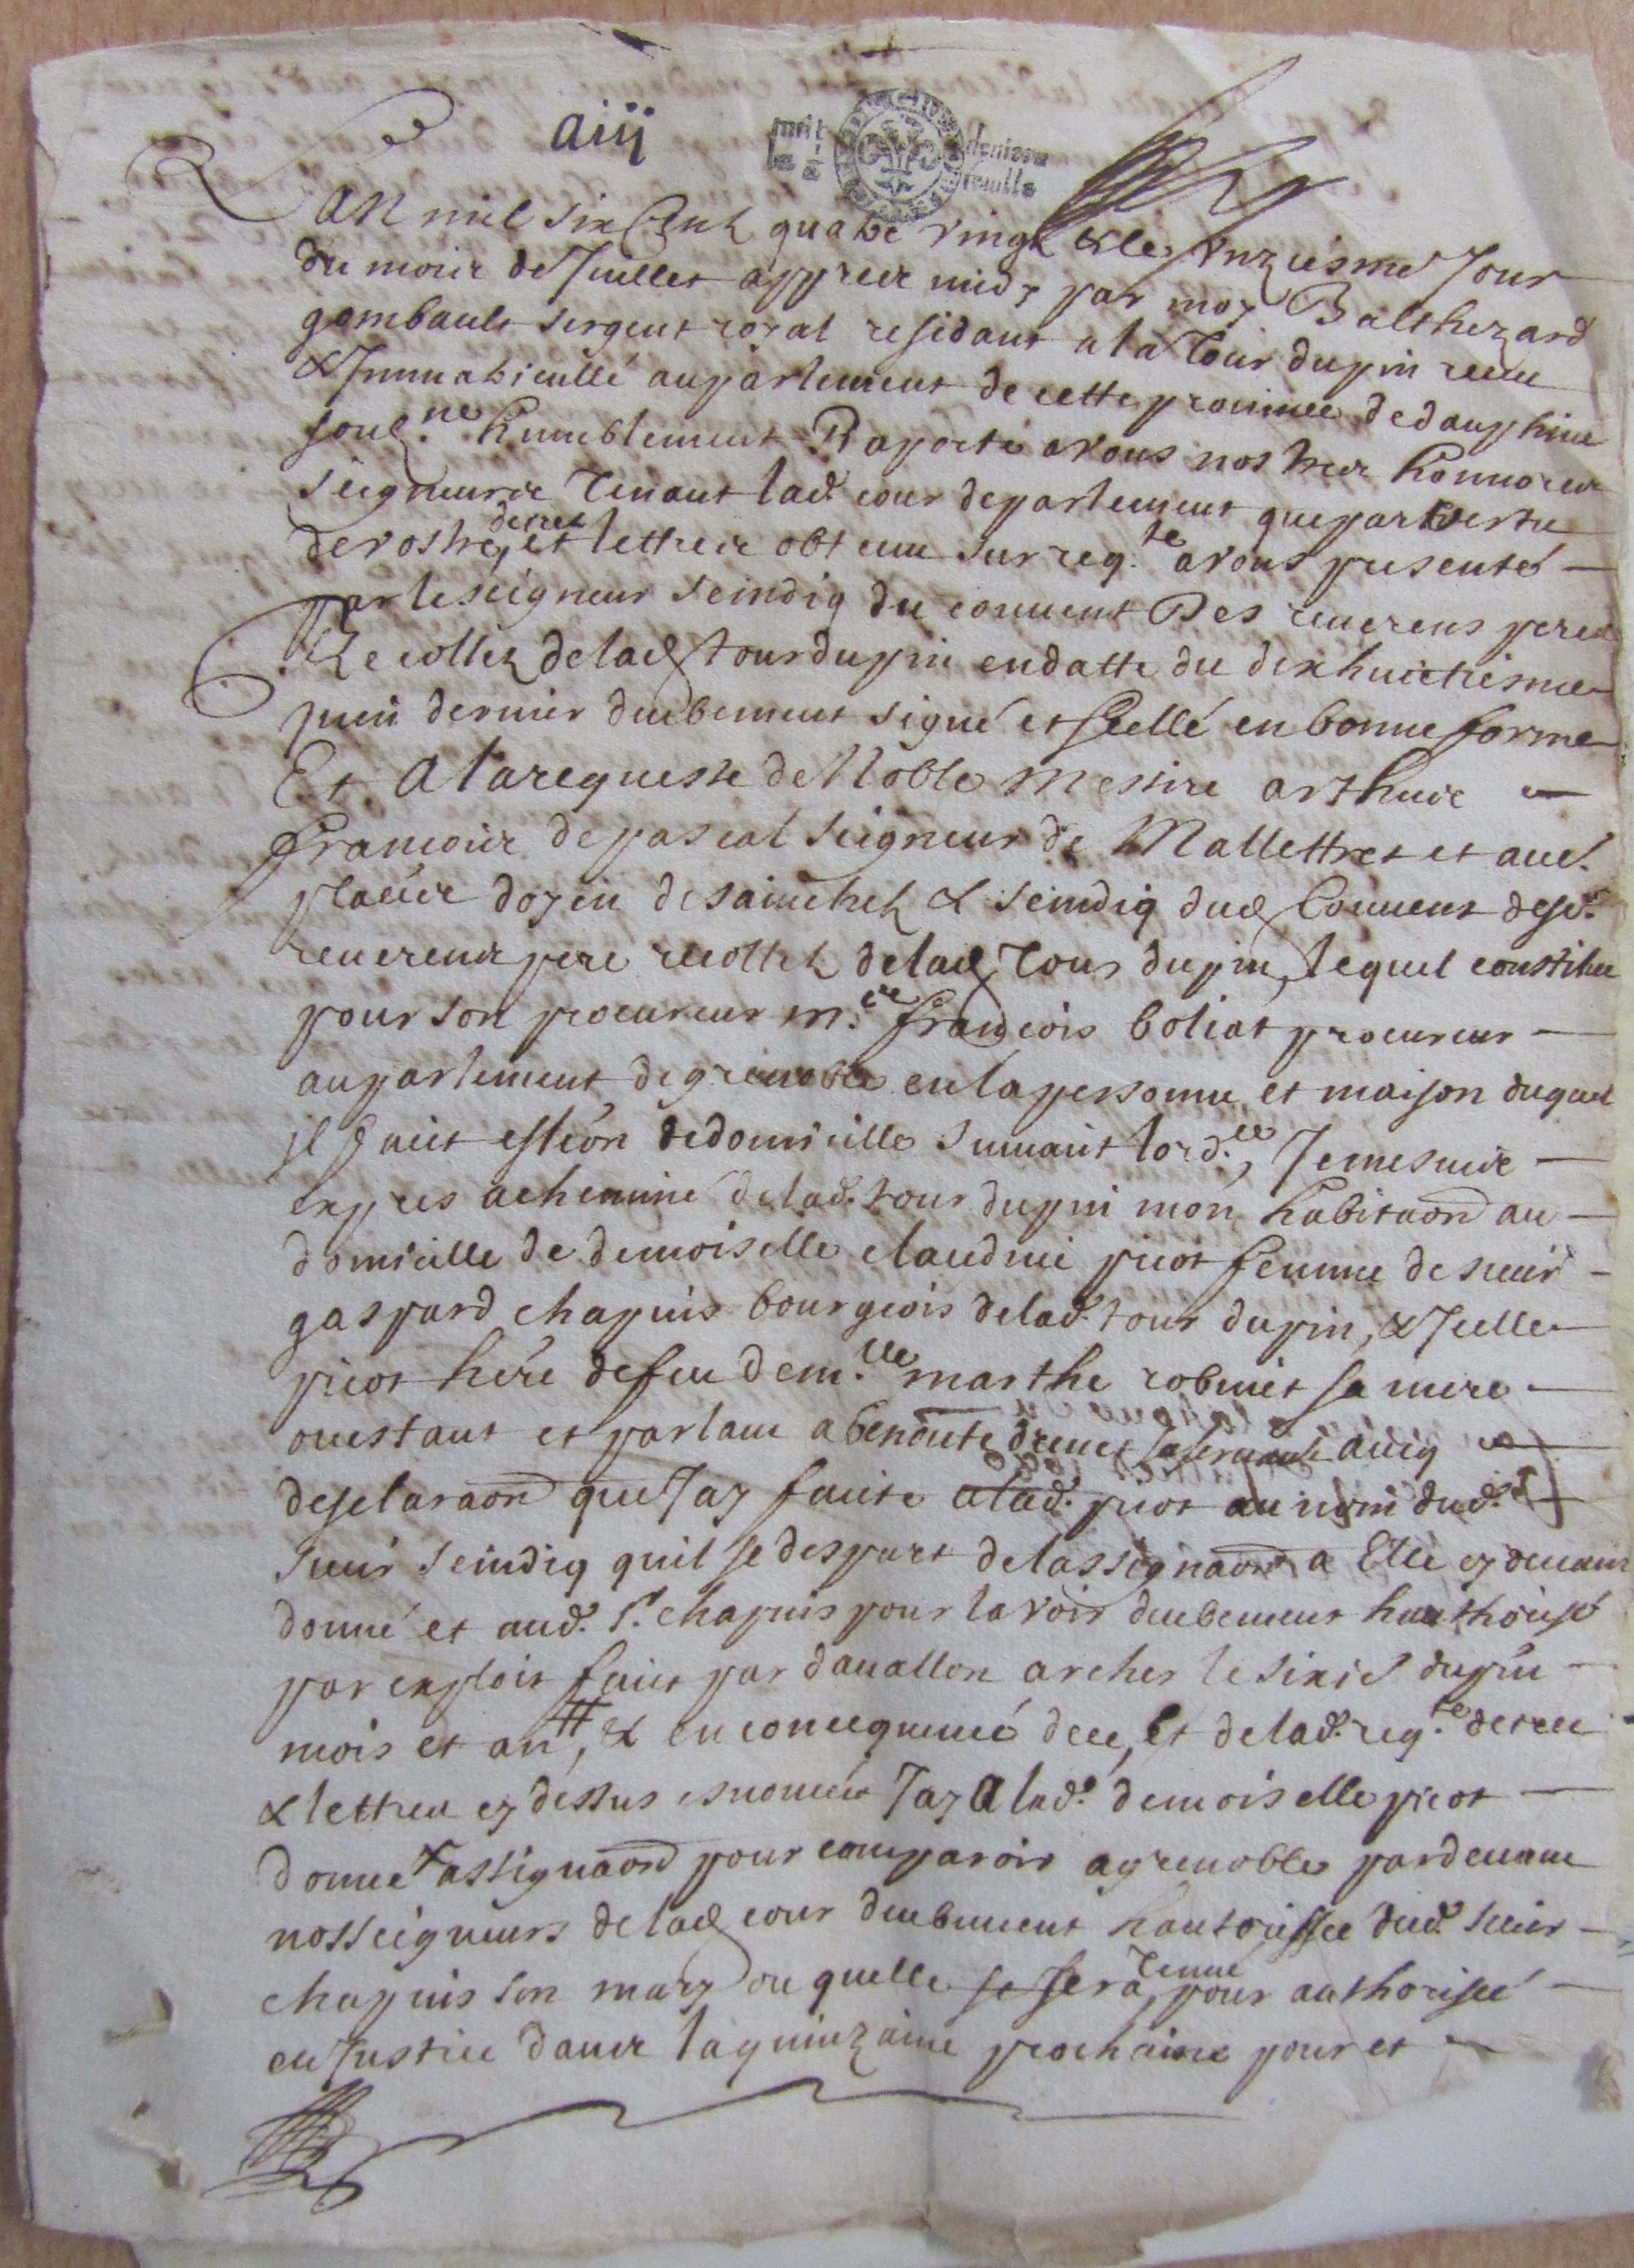 aiij
huit
deniers
le
feuille
Lan mil six Cent quatre vingt & le unziesme Jour
du mois de Juillet appres midy par moy Balthezard
gombault sergent royal residant a la Tour dupin receu
& Immatricullé au parlement de cette province de dauphine
humblement Raporté a vous nos tres honnores
seigneurs Tenant lad. cour de parlement que par vertu
decret
de vostre, et lettres obtenu sur reqte a vous presenté
par le seigneur seindiq du couvent Des reverens peres
Recollez de lad Tour dupin en datte du dixhuictiesme
juin dernier duebement signé et scellé en bonne forme
Et A la requeste de Noble Messire arthus
francois de pascal seigneur de Mallettret et
doyen de & seindiq dud Couvent desd.
reverends pere recollets de lad Tour dupin, lequel constitue
pour son procureur me françois boliat procureur
au parlement de grenoble en la personne et maison duquel
il faict eslëon de domicille suivant lordce, Je me suis
expres acheminé de lad. tour dupin mon habitaõn au
domicille de demoiselle claudine picot femme de sieur
gaspard chapuis bourgeois de lad. tour dupin, & Icelle
picot here de feu demlle marthe robinet sa mere
ou estant et parlant a benoite sa servante avecq
desclaraõn que Jay faicte a lad. picot au nom dud.
sieur seindiq quil se despart de lassignaõn a Elle cy devant
donné et aud. Sr. chapuis pour la voir duebement hauthorisé
par exploit faict par davallon archer le sixie du pñt
mois et an #, & en consequence de ce, et de lad. reqte decret
& lettres cy dessus enoncés Jay A lad. demoiselle picot
donné assignaõn pour comparoir a grenoble pardevant
nosseigneurs de lad cour duebement hautorissée dud. sieur
Tenue
chapuis son mary ou quelle se sera, pour authorisée
en Justice dans la quinzaine prochaine pour et